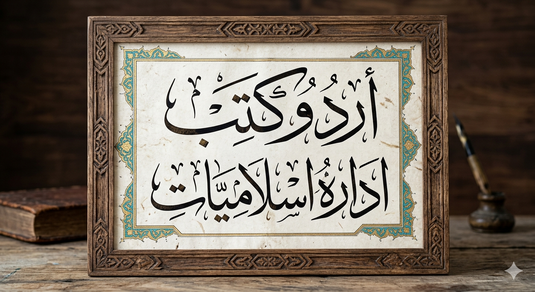 أردو کتب
ادارۂ اسلامیات